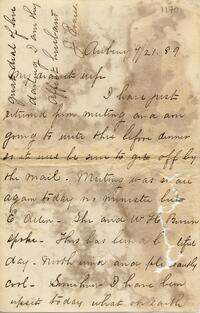 1170
great deal of love
darling I am thy
affct husband
Auburn 7/21.89
My dearest wife
I have just
returned from meeting and am
going to write this before dinner
so it will be sure to go off by
the mail. Meeting was small
again today no minister but
E Allen - She and W H B
spoke - This has been a b tiful
day - North wind and pleasantly
cool - Somehow I have been
upset today what on earth